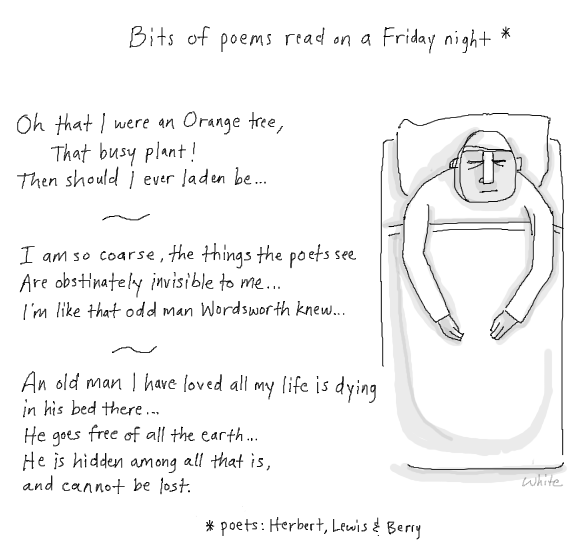 Bits of poems read on a Friday night *
Oh that I were an Orange tree,
That busy plant!
Then should I ever laden be...
I am so coarse, the things the poets see
Are obstinately invisible to me...
I'm like that odd man Wordsworth knew...
An old man I have loved all my life is dying
in his bed there...
He goes free of all the earth...
He is hidden among all that is,
and cannot be lost.
White
* poets: Herbert, Lewis & Berry